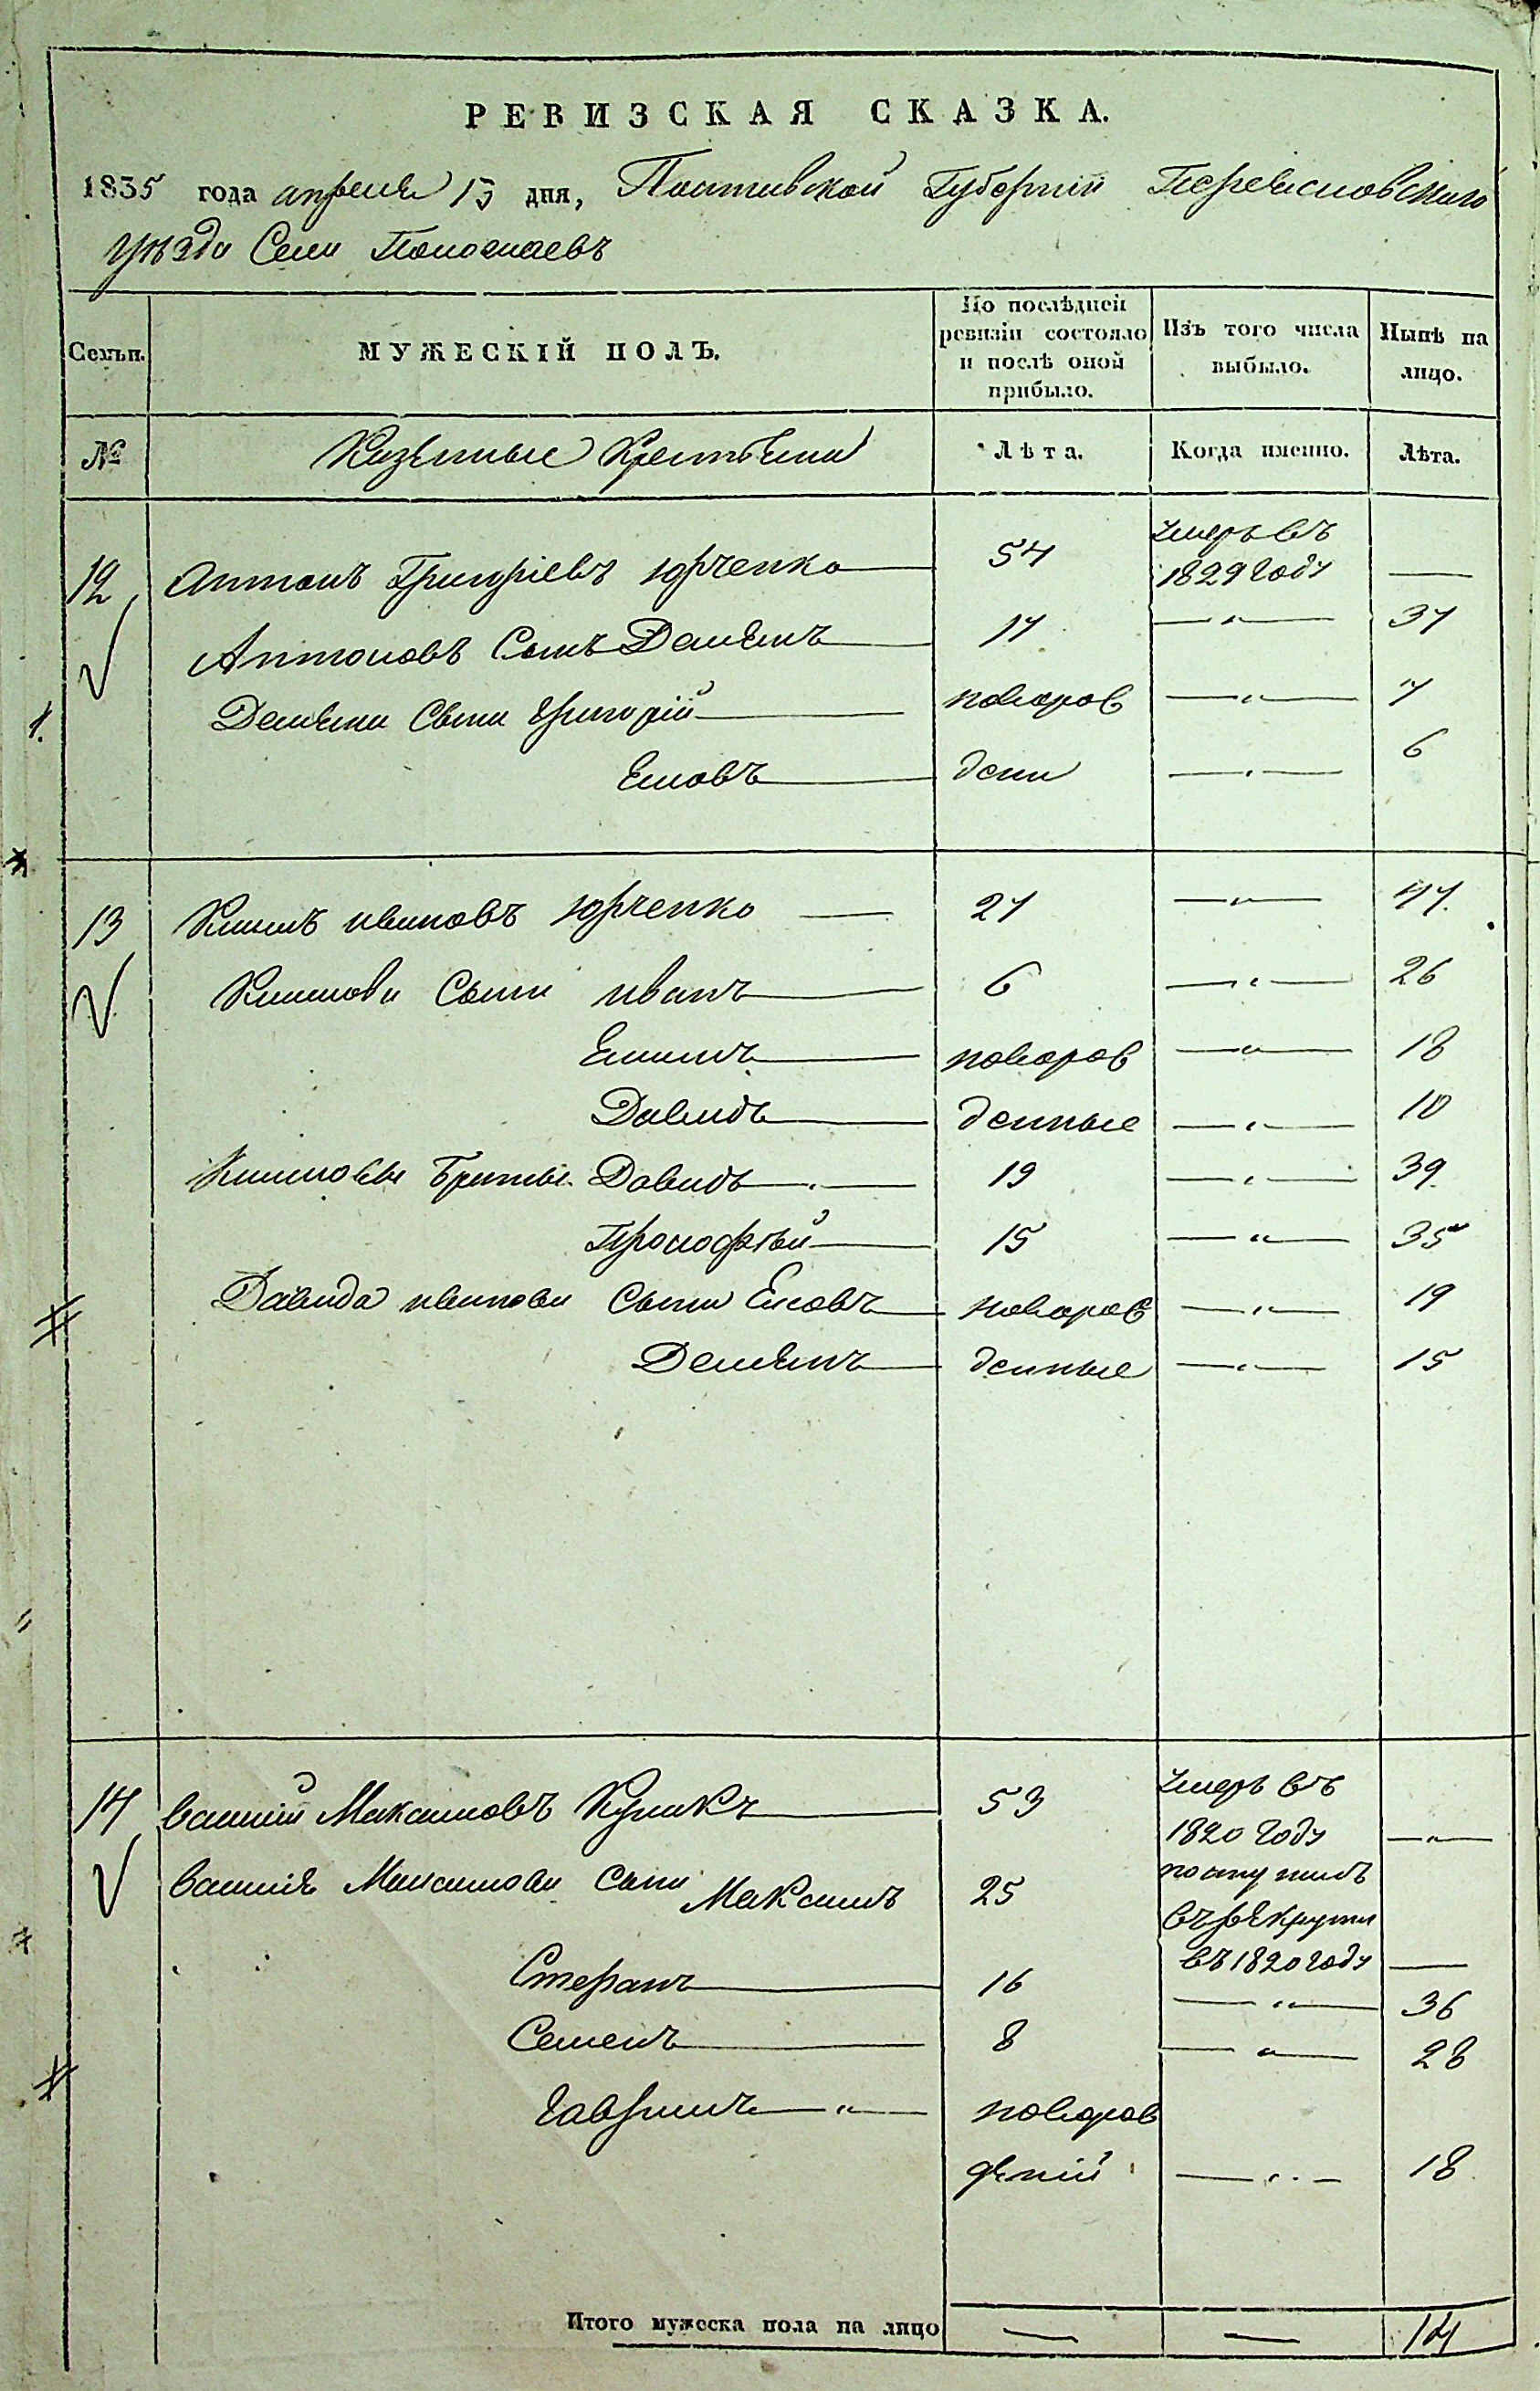 РЕВИЗСКАЯ СКАЗКА.
1835 года апреля 13 дня, Полтавской Губернии Переяславского
уезда Села
Семьи. МУЖЕСКІЙ ПОЛЪ. По послѣдней ревизіи состояло и послѣ оной прибыло. Изъ того числа выбыло. Нынѣ на лицо.
№ Казенные Крестьяне Лѣта. Когда именно. Лѣта.
12 Антонъ Григоріевъ Юрченко 54 умеръ въ 1829 году —
Антоновъ Сынъ Демянъ 17 — „ — 37
Демяна Сыни Григорій новорож — „ — 7
Емовъ дени — „ — 6
13 Климъ ивановъ Юрченко 27 — „ — 47.
Климова Сыни иванъ 6 — „ — 26
новорож — „ — 18
Давидъ денные — „ — 10
Климовы Братья Давидъ 19 — „ — 39
Прокофѣй 15 — „ — 35
Давида иванова Сыни новорож — „ — 19
Демянъ денные — „ — 15
14 василий Максимовъ Куликъ 53 умеръ въ 1820 году — „ —
василія Максимова Сыни Максимъ 25 поступилъ въ рекруты въ 1820 году —
Стефанъ 16 — „ — 36
Семенъ 8 — „ — 28
Гаврилъ — „ — новорож
деній — „ — 18
Итого мужеска пола на лицо — — 14